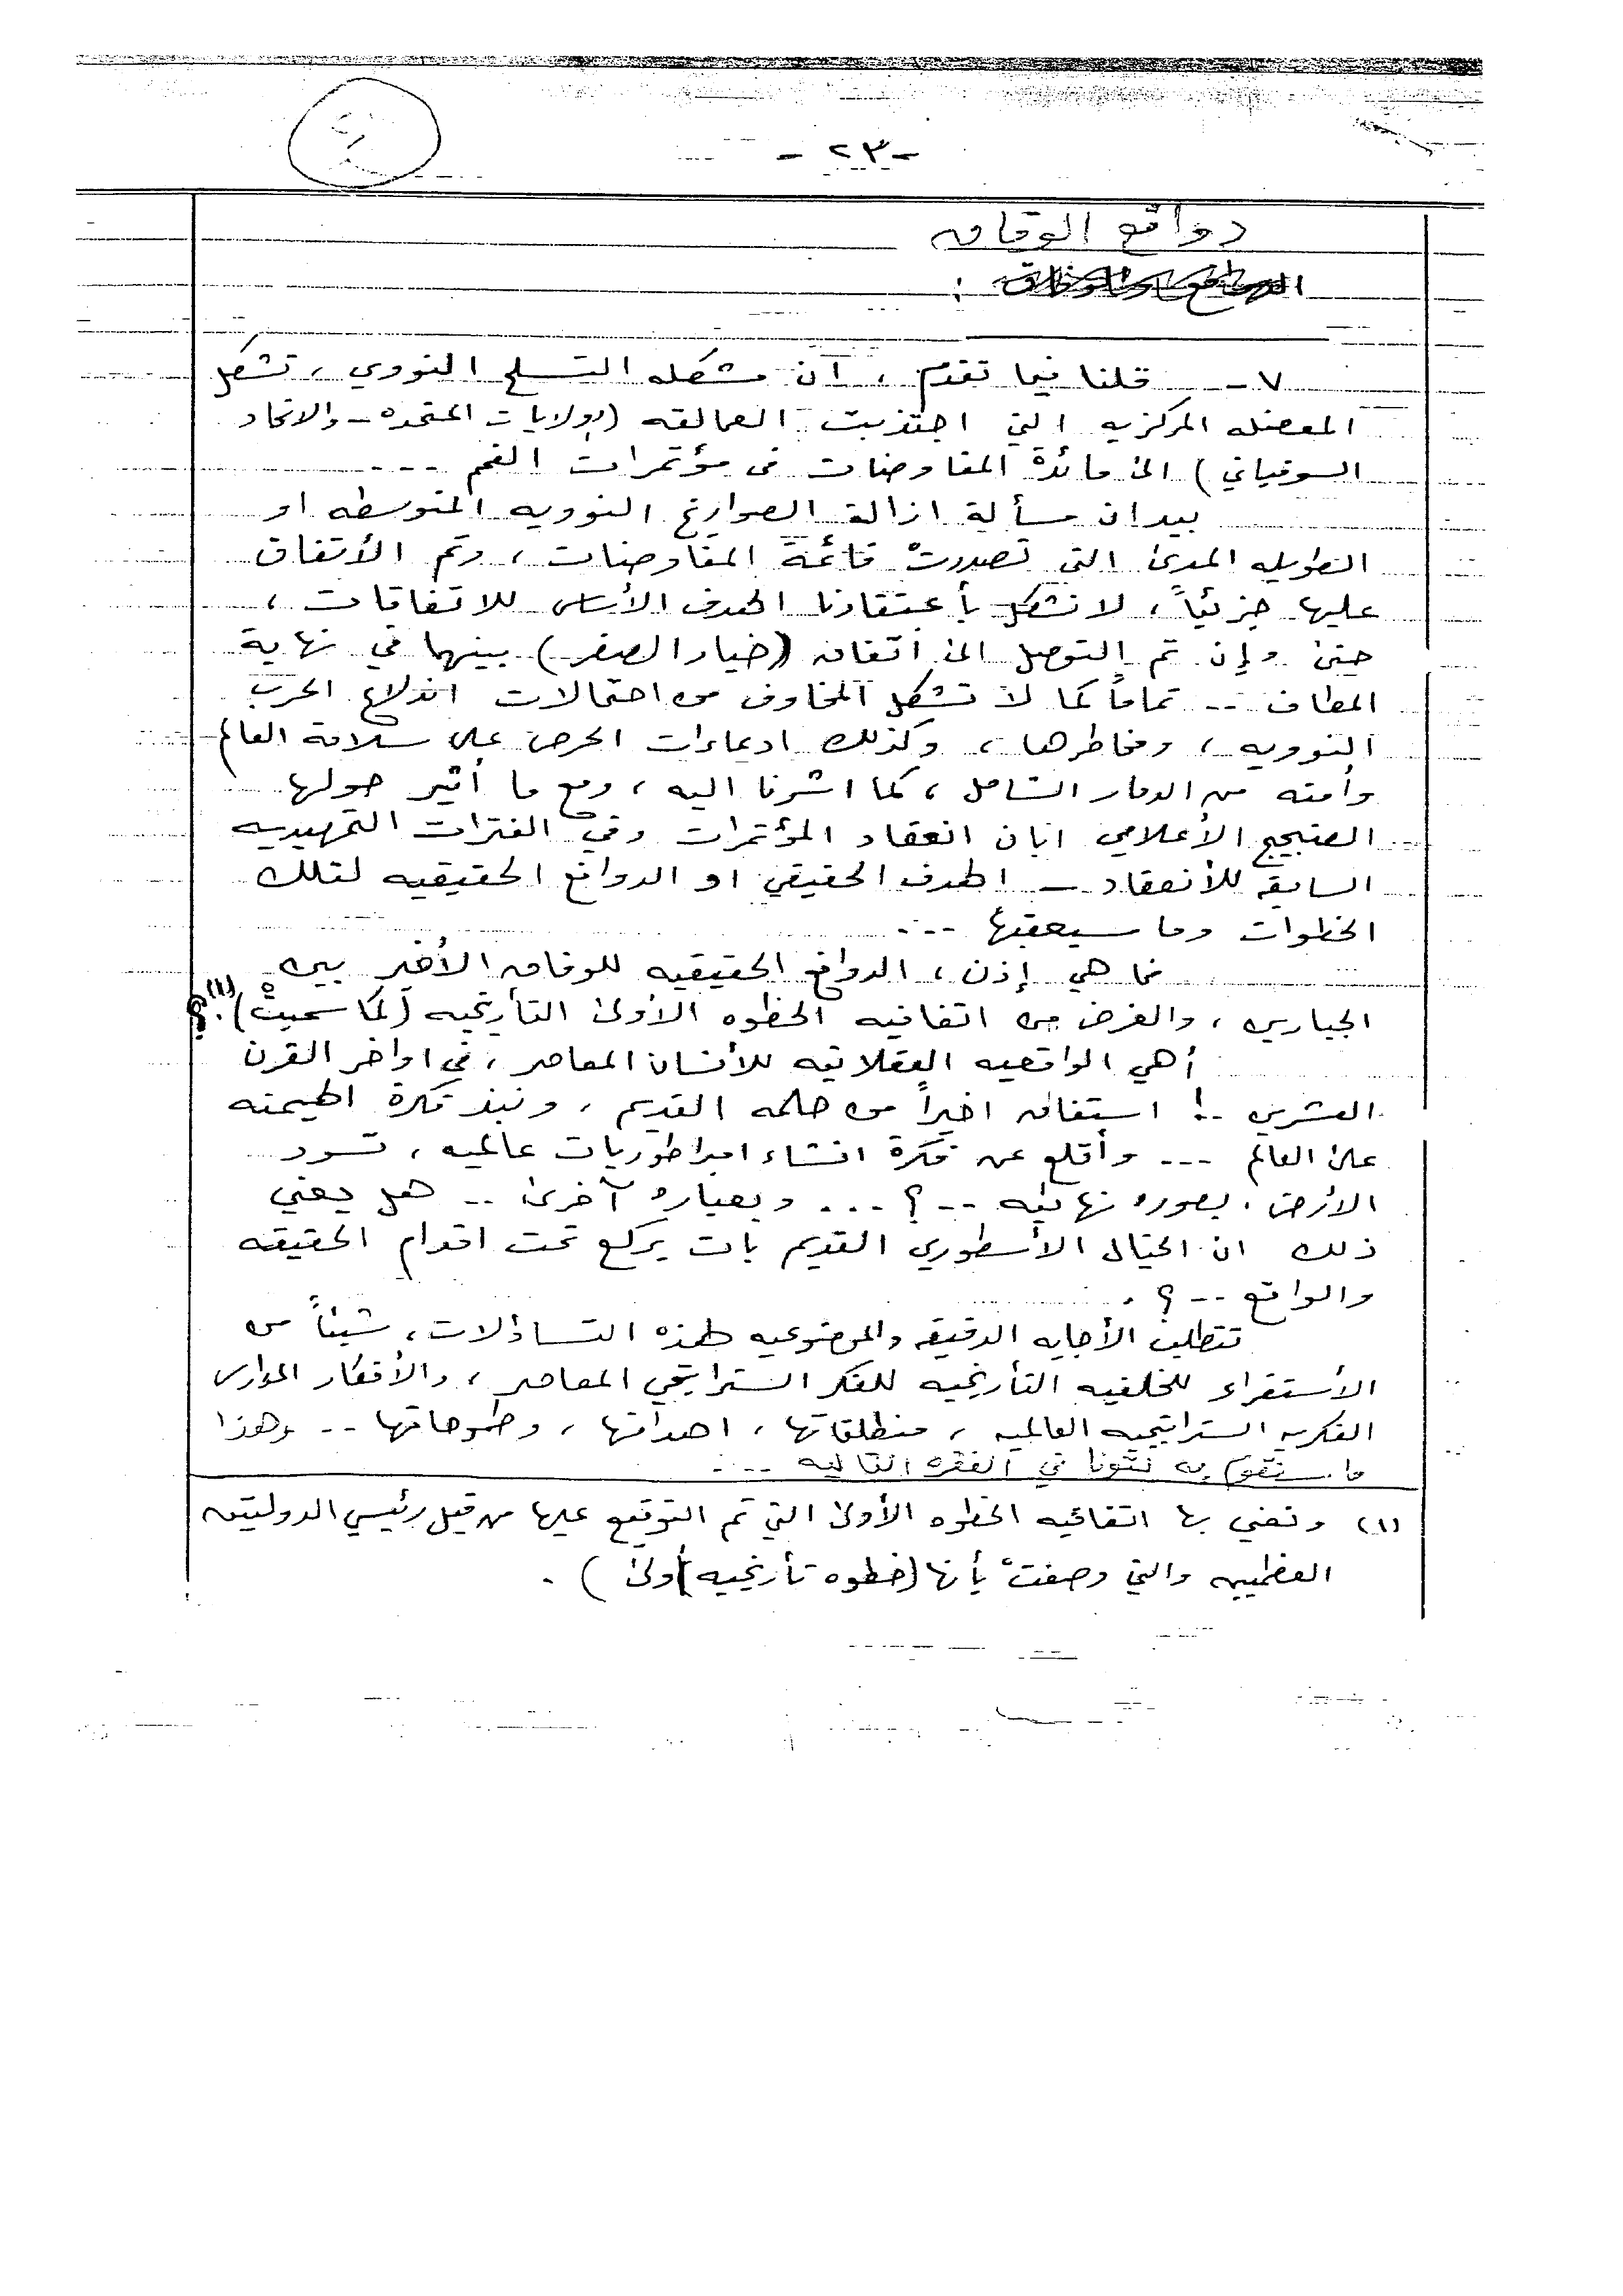 - ٢٣ -
دوافع الوفاق
٧ - قلنا فيما تقدم ، ان مشكله التسلح النووي ، تشكل
المعضله المركزيه التي اجتذبت العمالقه (الولايات المتحده - والاتحاد
السوفياتي) الى مائدة المفاوضات في مؤتمرات القمم ....
بيد ان مسألة ازالة الصواريخ النوويه المتوسطه او
الطويله المدى التي تصدرتْ قائمة المفاوضات ، وتم الأتفاق
عليها جزئياً ، لا تشكل بأعتقادنا الهدف الأساس للاتفاقات ،
حتى وإن تم التوصل الى اتفاق (خيار الصفر) بينهما في نهاية
المطاف .. تماماً كما لا تشكل المخاوف من احتمالات اندلاع الحرب
النوويه ، ومخاطرها ، وكذلك ادعاءات الحرص على سلامة العالم
وأمنه من الدمار الشامل ، كما اشرنا اليه ، ومع ما أثير حولها
الضجيج الأعلامي ابان انعقاد المؤتمرات وفي الفترات التمهيديه
السابقه للأنعقاد - الهدف الحقيقي او الدوافع الحقيقيه لتلك
الخطوات وما سيعقبها ....
فما هي إذن ، الدوافع الحقيقيه للوفاق الأخير بين
الجبارين ، والغرض من اتفاقيه الخطوه الأولى التأريخيه (كما سميتْ) (١) . ؟
أهي الواقعيه العقلانيه للأنسان المعاصر ، في اواخر القرن
العشرين .. ! استفاق اخيراً من حلمه القديم ، ونبذ فكرة الهيمنه
على العالم ... وأقلع عن فكرة انشاء امبراطوريات عالميه ، تسود
الأرض ، بصوره نهائيه .. ؟ .... وبعباره آخرى .. هل يعني
ذلك ان الخيال الأسطوري القديم بات يركع تحت اقدام الحقيقه
والواقع .. ؟ .
تتطلب الأجابه الدقيقه والموضوعيه لهذه التساؤلات ، شيئاً من
الأستقراء للخلفيه التأريخيه للفكر الستراتيجي المعاصر ، والأفكار المدارس
الفكريه الستراتيجيه العالميه ، منطلقاتها ، اهدافها ، وطموحاتها .. وهذا
ما سنقوم به في الفقره التاليه ....
(١) ونعني بها اتفاقيه الخطوه الأولى التي تم التوقيع عليها من قبل رئيسي الدولتين
العظميين والتي وصفتْ بأنها (خطوه تأريخيه أولى) .